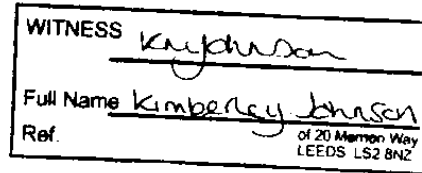 WITNESS KMJohnson
Full Name Kimberley Johnson
Ref. of 20 Memon Way
LEEDS LS2 8NZ